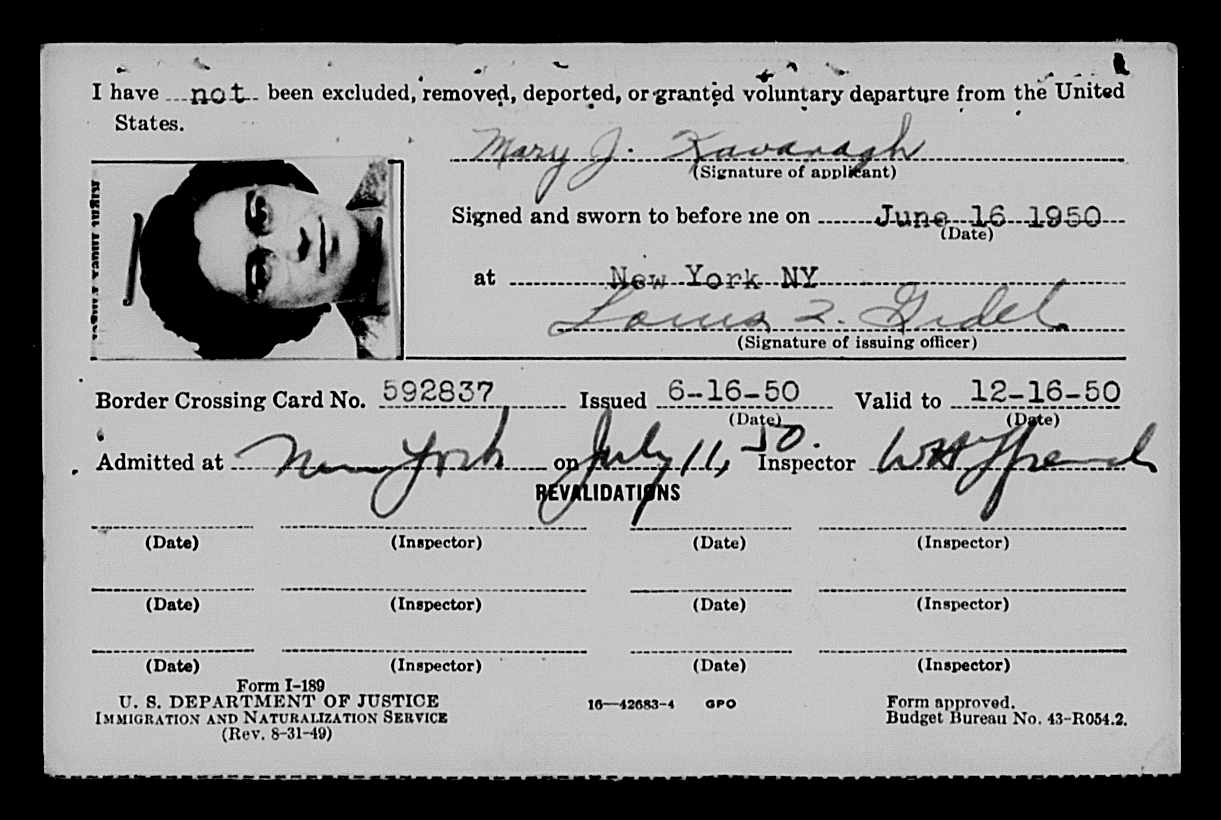 I have not been excluded, removed, deported, or granted voluntary departure from the United
States.
Mary J. Kavanagh
(Signature of applicant)
Signed and sworn to before me on June 16 1950
(Date)
at New York NY
Louis
(Signature of issuing officer)
Border Crossing Card No. 592837 Issued 6-16-50 Valid to 12-16-50
(Date) (Date)
Admitted at New York on July 11, 50. Inspector
REVALIDATIONS
(Date) (Inspector) (Date) (Inspector)
(Date) (Inspector) (Date) (Inspector)
(Date) (Inspector) (Date) (Inspector)
Form I-189
U. S. DEPARTMENT OF JUSTICE
IMMIGRATION AND NATURALIZATION SERVICE
(Rev. 8-31-49)
16—42683-4 GPO
Form approved.
Budget Bureau No. 43-R054.2.